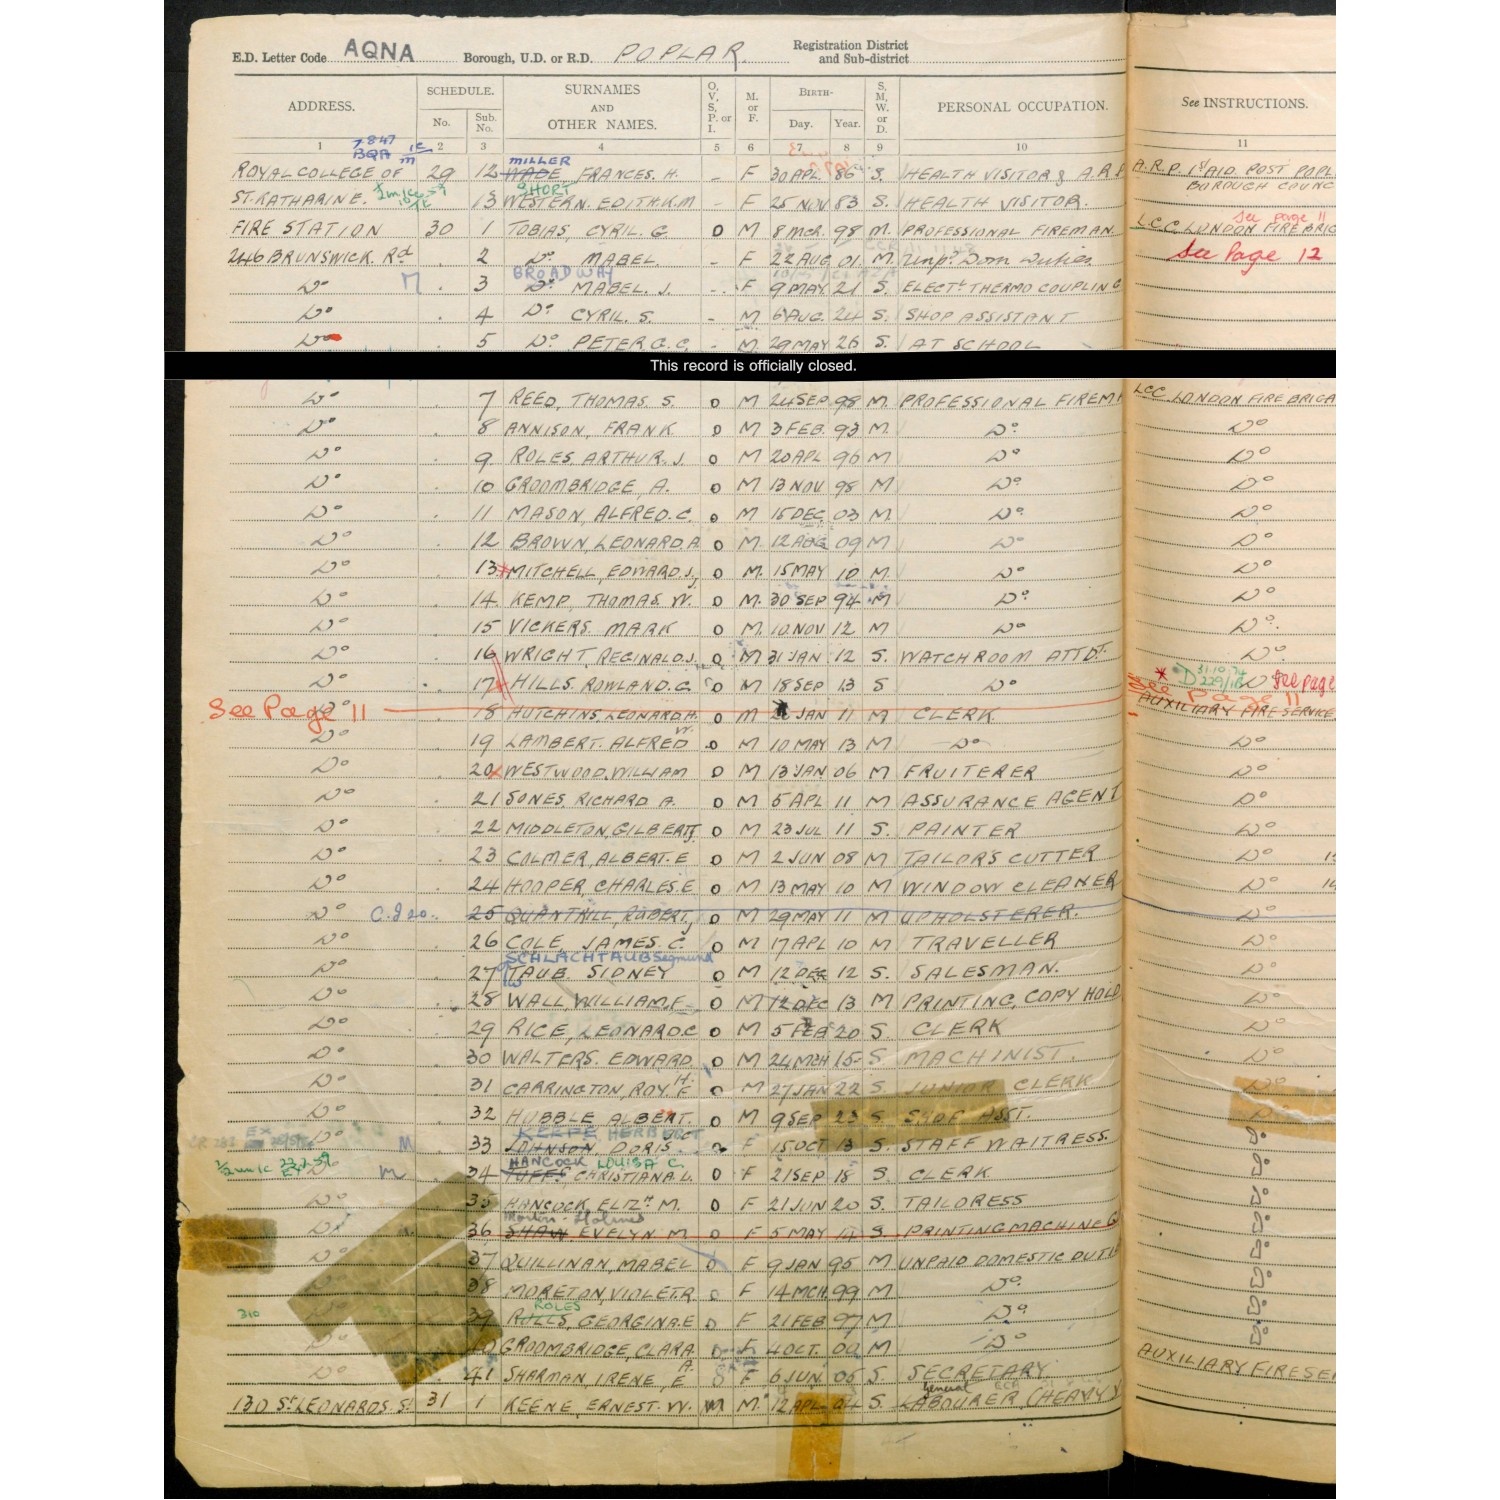 E.D. Letter Code AQNA Borough, U.D. or R.D. POPLAR. Registration District and Sub-district
ADDRESS. SCHEDULE. No. Sub. No. SURNAMES AND OTHER NAMES. O, V, S, P, or I. M. or F. BIRTH- Day. Year. S, M, W, or D. PERSONAL OCCUPATION. See INSTRUCTIONS.
1 2 3 4 5 6 7 8 9 10 11
MILLER
ROYAL COLLEGE OF 29 12 WADE, FRANCES. H. - F 30 APL 86 S. HEALTH VISITOR & A.R.P A.R.P. 1st AID. POST POPL
BOROUGH COUNC
SHORT
ST. KATHARINE. 13 WESTERN. EDITH.K.M - F 25 NOV 83 S. HEALTH VISITOR.
See page 11
FIRE STATION 30 1 TOBIAS, CYRIL. G. O M 8 MCR. 98 M. PROFESSIONAL FIREMAN. L.C.C. LONDON FIRE BRIG
246 BRUNSWICK. Rd . 2 Do MABEL. - F 22 AUG 01. M. Unpd Dom Duties See Page 12
BROADWAY
Do M . 3 Do MABEL. J. - F 9 MAY. 21 S. ELECTL THERMO COUPLING
Do . 4 Do CYRIL. S. - M 6 AUG. 24 S. SHOP ASSISTANT
Do 5 Do PETER G. C. - M. 29 MAY 26 S. AT SCHOOL
This record is officially closed.
Do 7 REED, THOMAS. S. O M 24 SEP. 98 M. PROFESSIONAL FIREM LCC. LONDON FIRE BRIGA
Do . 8 ANNISON, FRANK O M 3 FEB. 93 M. Do Do
Do . 9. ROLES. ARTHUR. J. O M 20 APL 96 M Do Do
Do . 10 GROOMBRIDGE, A. O M 13 NOV 98 M Do Do
Do . 11 MASON, ALFRED. C. O M 15 DEC. 03 M. Do Do
Do . 12 BROWN, LEONARD. A O M. 12 AUG 09 M Do Do
Do . 13 MITCHELL, EDWARD. J. O M. 15 MAY 10 M. Do Do
Do . 14. KEMP, THOMAS. W. O M. 30 SEP 94 M Do Do
Do . 15 VICKERS. MARK O M. 10 NOV 12 M Do Do
Do . 16 WRIGHT, REGINALD. J. O M 31 JAN 12 S. WATCHROOM ATTDT. Do
Do . 17 HILLS. ROWLAND. G. O M 18 SEP 13 S Do See page
See Page 11 18 HUTCHINS, LEONARD. H. O M JAN 11 M CLERK See Page 11 AUXILIARY FIRE SERVICE
Do 19 LAMBERT. ALFRED W. O M 10 MAY 13 M Do Do
Do . 20 WESTWOOD. WILLIAM O M 13 JAN 06 M FRUITERER Do
Do . 21 SONES. RICHARD A. O M 5 APL 11 M ASSURANCE AGENT Do
Do . 22 MIDDLETON, GILBERT J. O M 23 JUL 11 S. PAINTER Do
Do . 23 COLMER, ALBERT. E O M 2 JUN 08 M TAILOR'S CUTTER Do
Do . 24 HOOPER, CHARLES. E O M 13 MAY 10 M WINDOW CLEANER Do
Do 25 QUANTRILL, ROBERT, J O M 29 MAY 11 M UPHOLSTERER. Do
Do . 26 COLE, JAMES. C. O M 17 APL 10 M TRAVELLER Do
SCHLACHTAUB Segmund
Do . 27 TAUB. SIDNEY O M 12 DEC 12 S. SALESMAN. Do
Do 28 WALL, WILLIAM, F O M 12 DEC 13 M PRINTING, COPY HOLD Do
Do 29 RICE, LEONARD. C O M 5 FEB 20 S. CLERK Do
Do 30 WALTERS. EDWARD. O M 24 MCH 15 S MACHINIST. Do
Do 31 CARRINGTON, ROY. H. F O M 27 JAN 22 S. JUNIOR CLERK Do
Do 32 HUBBLE ALBERT. O M 9 SEP 23 S SHOP ASST. Do
Do M 33 JOHNSON DORIS. F 15 OCT 13 S. STAFF WAITRESS. Do
HANCOCK LOUISA C.
Do M 34 TUFFS, CHRISTIANA. L. O F 21 SEP 18 S. CLERK Do
Do 35 HANCOCK, ELIZH M. O F 21 JUN 20 S. TAILORESS Do
Do 36 SHAW EVELYN M O F 5 MAY S. PRINTING MACHINE Do
Do 37 QUILLINAN, MABEL O F 9 JAN 95 M UNPAID DOMESTIC DUTIE Do
Do 38 MORETON, VIOLET. R. O F 14 MCH 99 M Do Do
ROLES
310 39 ROLLS, GEORGINA. E O F 21 FEB 97 M Do Do
Do 40 GROOMBRIDGE, CLARA. O F 4 OCT. 00 M Do Do
Do 41 SHARMAN, IRENE, E A. O F 6 JUN 06 S. SECRETARY. AUXILIARY FIRE SE
General
130 ST. LEONARDS. St 31 1 KEENE, ERNEST. W. M. 12 APL 04 S. LABOURER (HEAVY